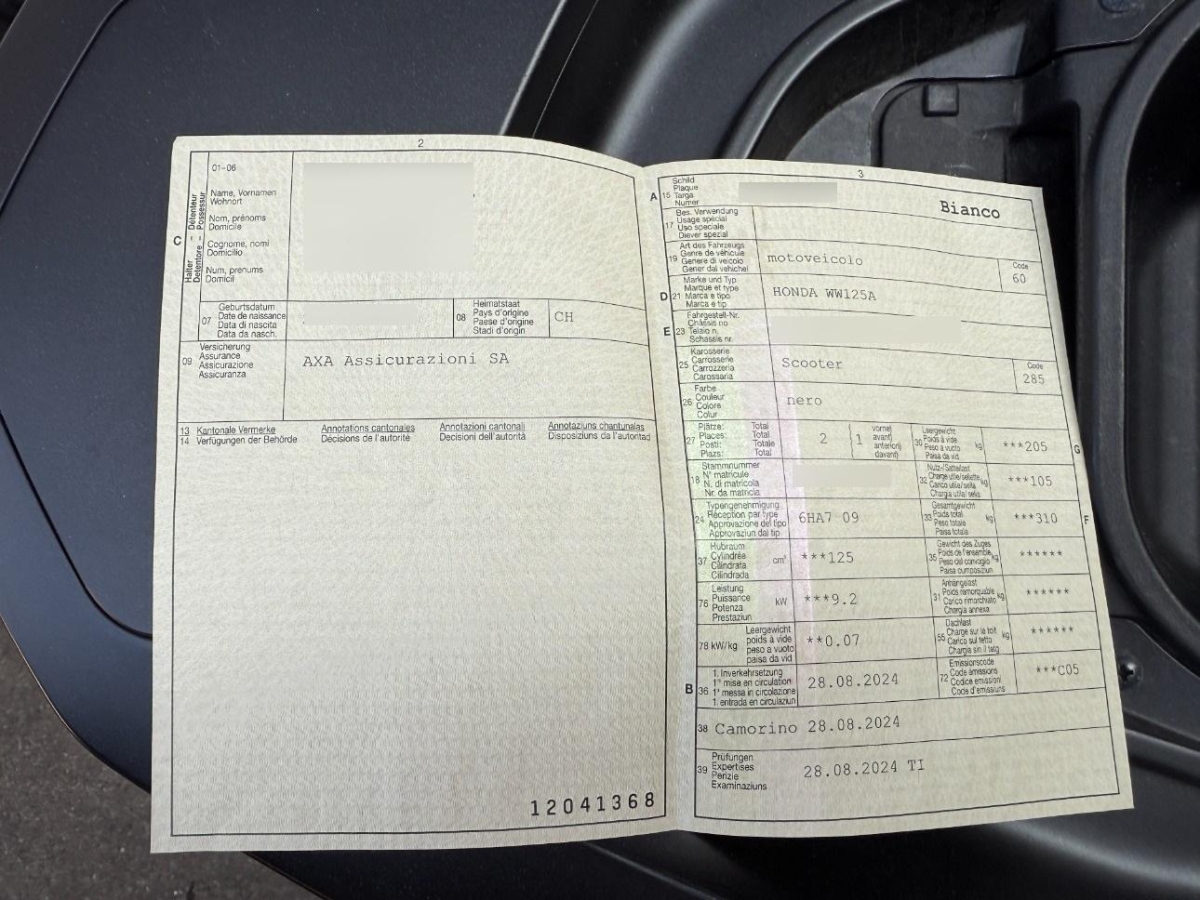 2
01-06
C
Halter - Détenteur
Detentore - Possessur
Name, Vornamen
Wohnort
Nom, prénoms
Domicile
Cognome, nomi
Domicilio
Num, prenums
Domicil
07
Geburtsdatum
Date de naissance
Data di nascita
Data da nasch.
08
Heimatstaat
Pays d'origine
Paese d'origine
Stadi d'origin
CH
09
Versicherung
Assurance
Assicurazione
Assicuranza
AXA Assicurazioni SA
13 Kantonale Vermerke Annotations cantonales Annotazioni cantonali Annotaziuns chantunalas
14 Verfügungen der Behörde Décisions de l'autorité Decisioni dell'autorità Disposiziuns da l'autoritad
12041368
3
A 15
Schild
Plaque
Targa
Numer
Bianco
17
Bes. Verwendung
Usage spécial
Uso speciale
Diever spezial
19
Art des Fahrzeugs
Genre de véhicule
Genere di veicolo
Gener dal vehichel
motoveicolo
Code
60
D 21
Marke und Typ
Marque et type
Marca e tipo
Marca e tip
HONDA WW125A
E 23
Fahrgestell-Nr.
Châssis no
Telaio n.
Schassis nr.
25
Karosserie
Carrosserie
Carrozzeria
Carossaria
Scooter
Code
285
26
Farbe
Couleur
Colore
Colur
nero
27
Plätze: Total
Places: Total
Posti: Totale
Plazs: Total
2
1
vorne
avant
anteriori
davant
30
Leergewicht
Poids à vide
Peso a vuoto
Paisa da vid
kg
***205
G
18
Stammnummer
N° matricule
N. di matricola
Nr. da matricla
32
Nutz-/Sattellast
Charge utile/sellette
Carico utile/sella
Chargia utila/sella
kg
***105
24
Typengenehmigung
Réception par type
Approvazione del tipo
Approvaziun dal tip
6HA7 09
33
Gesamtgewicht
Poids total
Peso totale
Paisa totala
kg
***310
F
37
Hubraum
Cylindrée
Cilindrata
Cilindrada
cm³
***125
35
Gewicht des Zuges
Poids de l'ensemble
Peso del convoglio
Paisa cumposiziun
kg
******
76
Leistung
Puissance
Potenza
Prestaziun
kW
***9.2
31
Anhängelast
Poids remorquable
Carico rimorchiato
Chargia annexa
kg
******
78 kW/kg
Leergewicht
poids à vide
peso a vuoto
paisa da vid
**0.07
55
Dachlast
Charge sur le toit
Carico sul tetto
Chargia sin il tetg
kg
******
B 36
1. Inverkehrsetzung
1re mise en circulation
1a messa in circolazione
1. entrada en circulaziun
28.08.2024
72
Emissionscode
Code émissions
Codice emissioni
Code d'emissiuns
***C05
38 Camorino 28.08.2024
39
Prüfungen
Expertises
Perizie
Examinaziuns
28.08.2024 TI